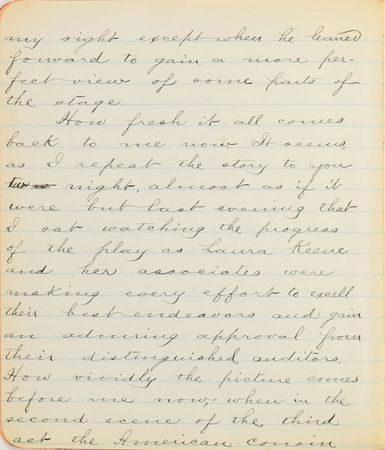 my sight except when he leaned
forward to gain a more per-
fect view of some parts of
the stage.
How fresh it all comes
back to me now It seems,
as I repeat the story to you
night, almost as if it
were but last evening that
I sat watching the progress
of the play as Laura Keene
and her associates were
making every effort to excell
their best endeavors and gain
an admiring approval from
their distinguished auditors.
How vividly the picture comes
before me now, when in the
second scene of the third
act the American cousin